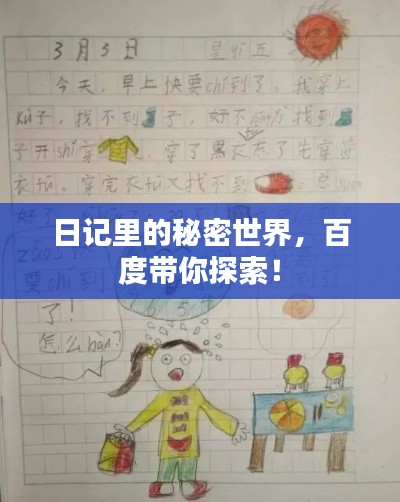 3月3日 星qī五
今天，早上快要chí到了。我穿上
kù子，找不到子，好不找到
子开shǐ穿，穿了黑衣忘了先穿
衣fú。穿完衣fú又找不到。总
好了
日记里的秘密世界，百
度带你探索！
要chí到
了！
怎么bàn？